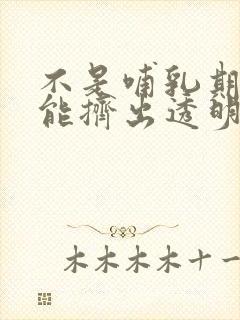 不是哺乳期
能擠出透明
木木木木十一